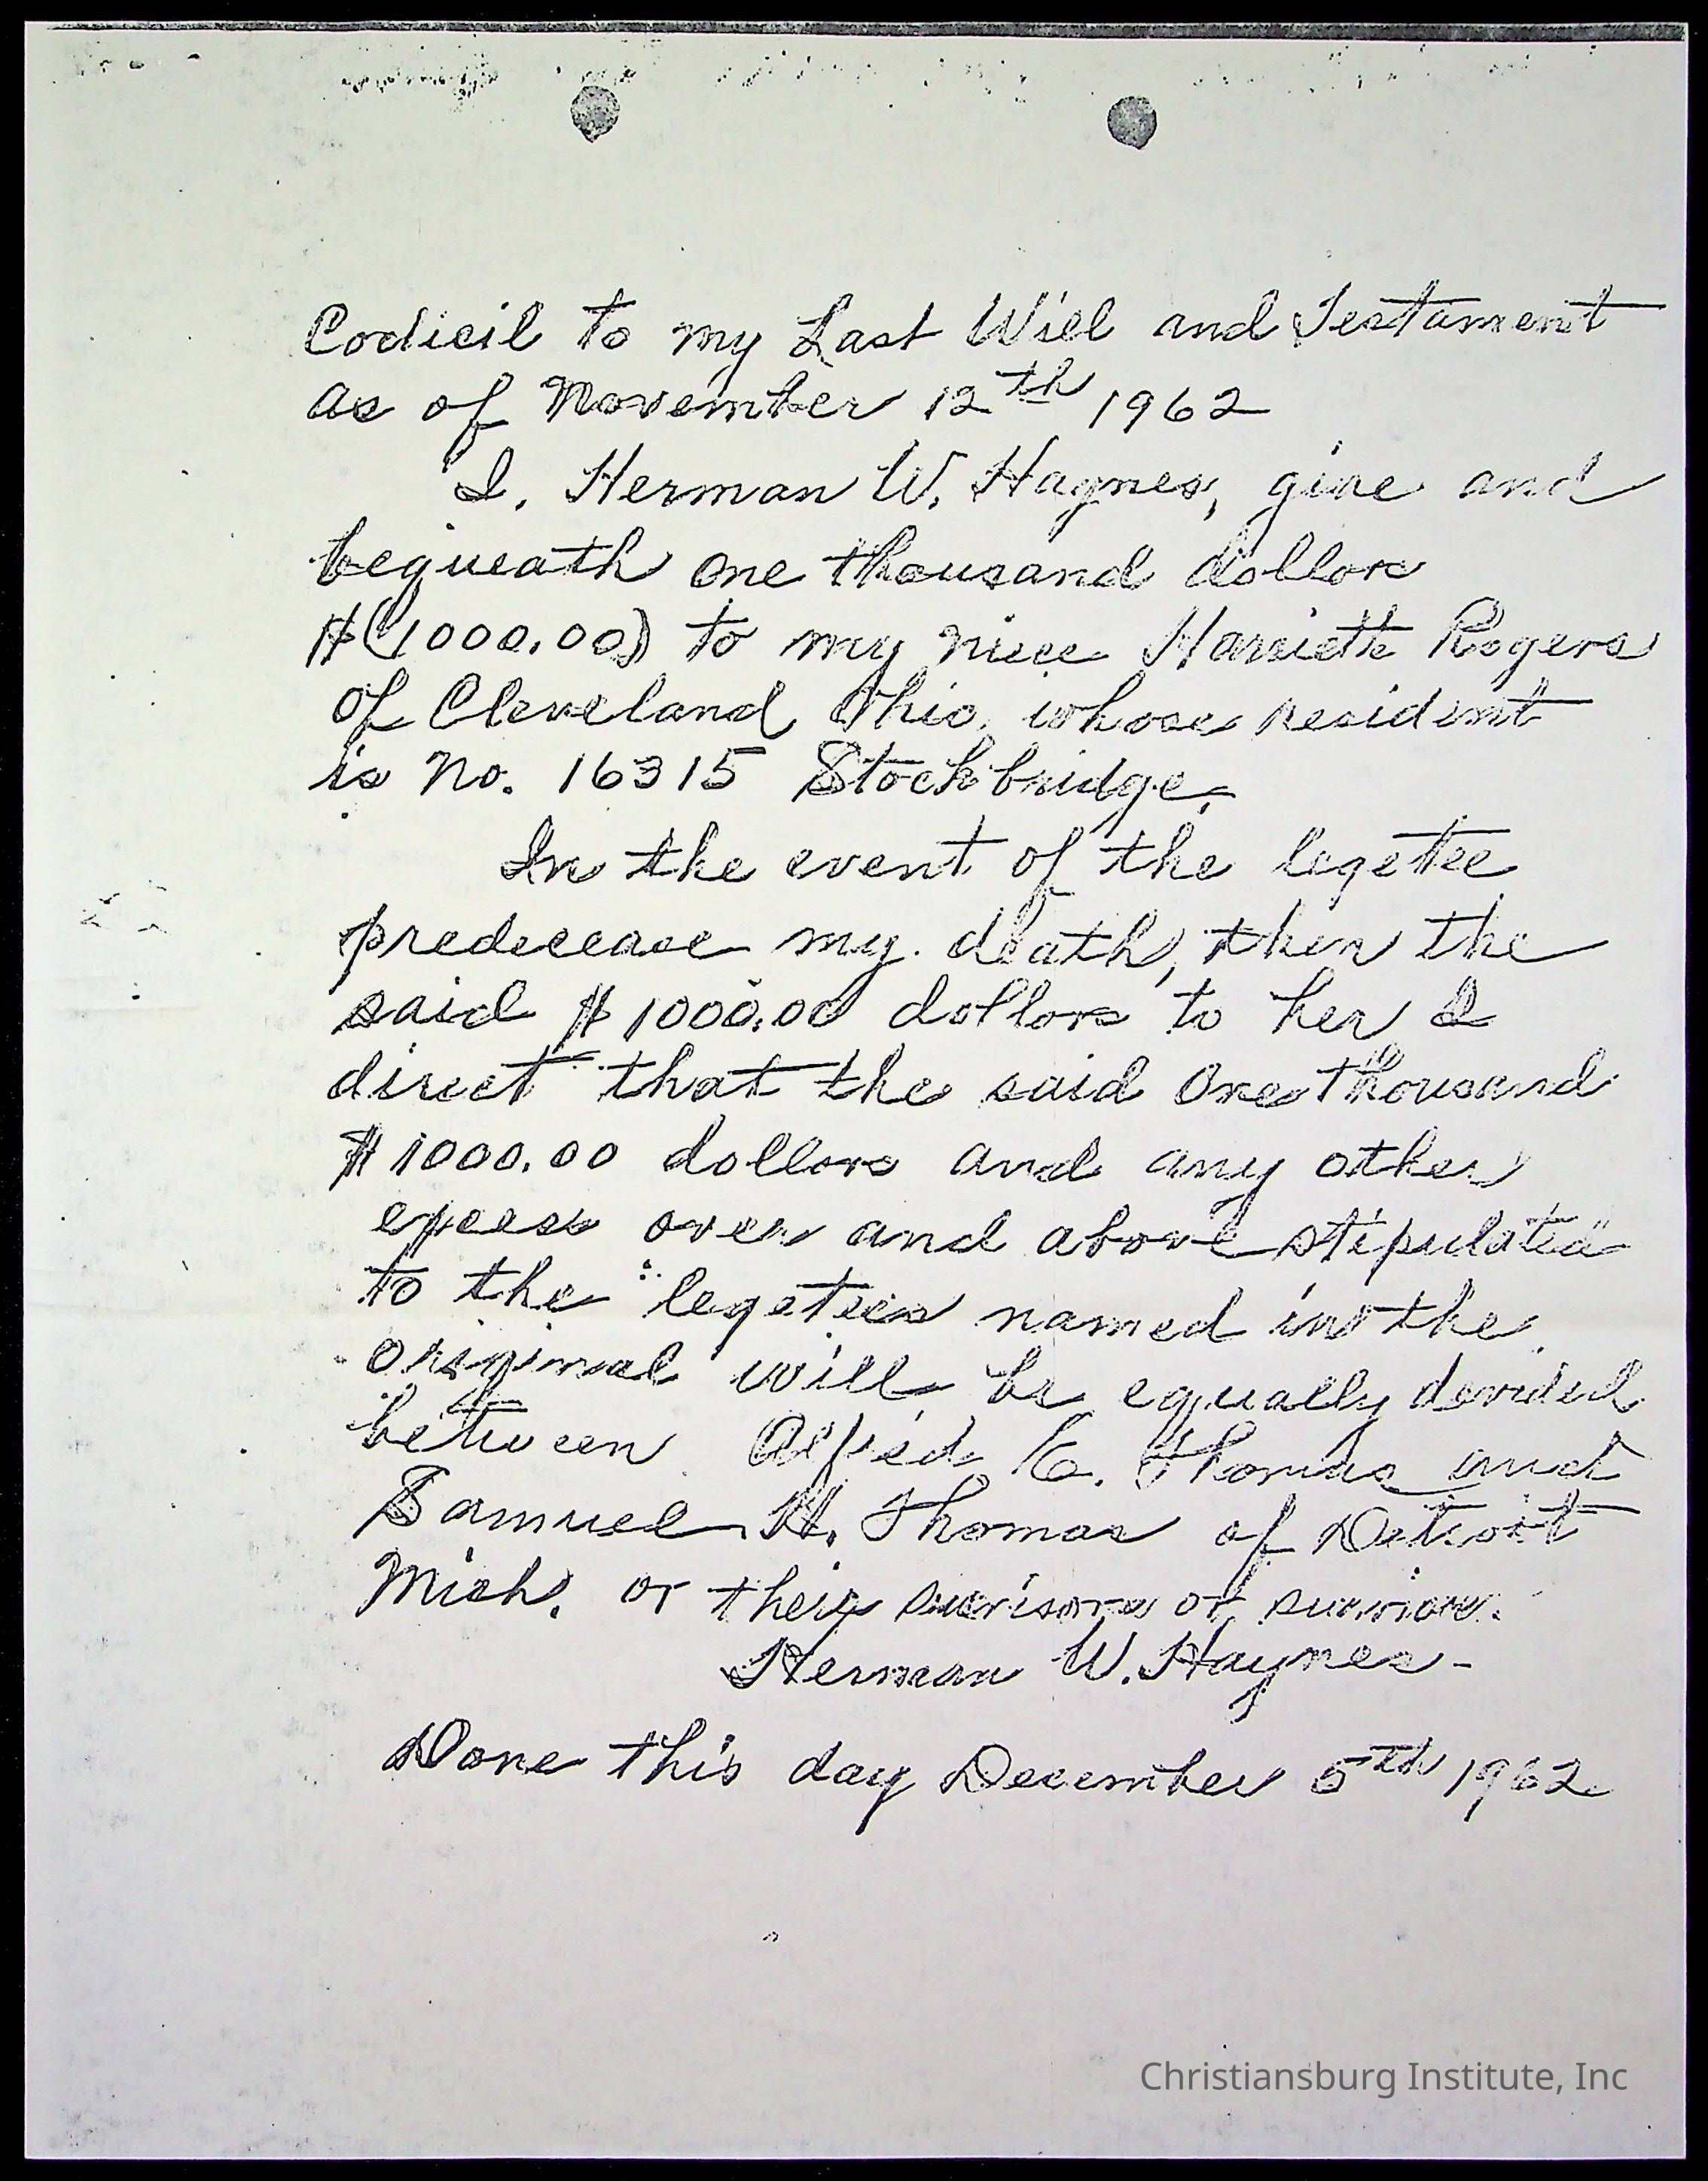 Codicil to my Last Will and Testament
as of November 12th 1962
I, Herman W. Haynes, give and
bequeath one thousand dollars
$(1000.00) to my niece Harriette Rogers
of Cleveland, Ohio, whose resident
is No. 16315 Stockbridge.
In the event of the legettee
predecease my death, then the
said $1000.00 dollars to her I
direct that the said One Thousand
$1000.00 dollars and any other
excess over and above stipulated
to the legetees named in the
original will be equally devided
between Alfred E. Thomas and
Samuel H. Thomas of Detroit
Mich. or their or
Herman W. Haynes-
Done this day December 5th 1962
Christiansburg Institute, Inc